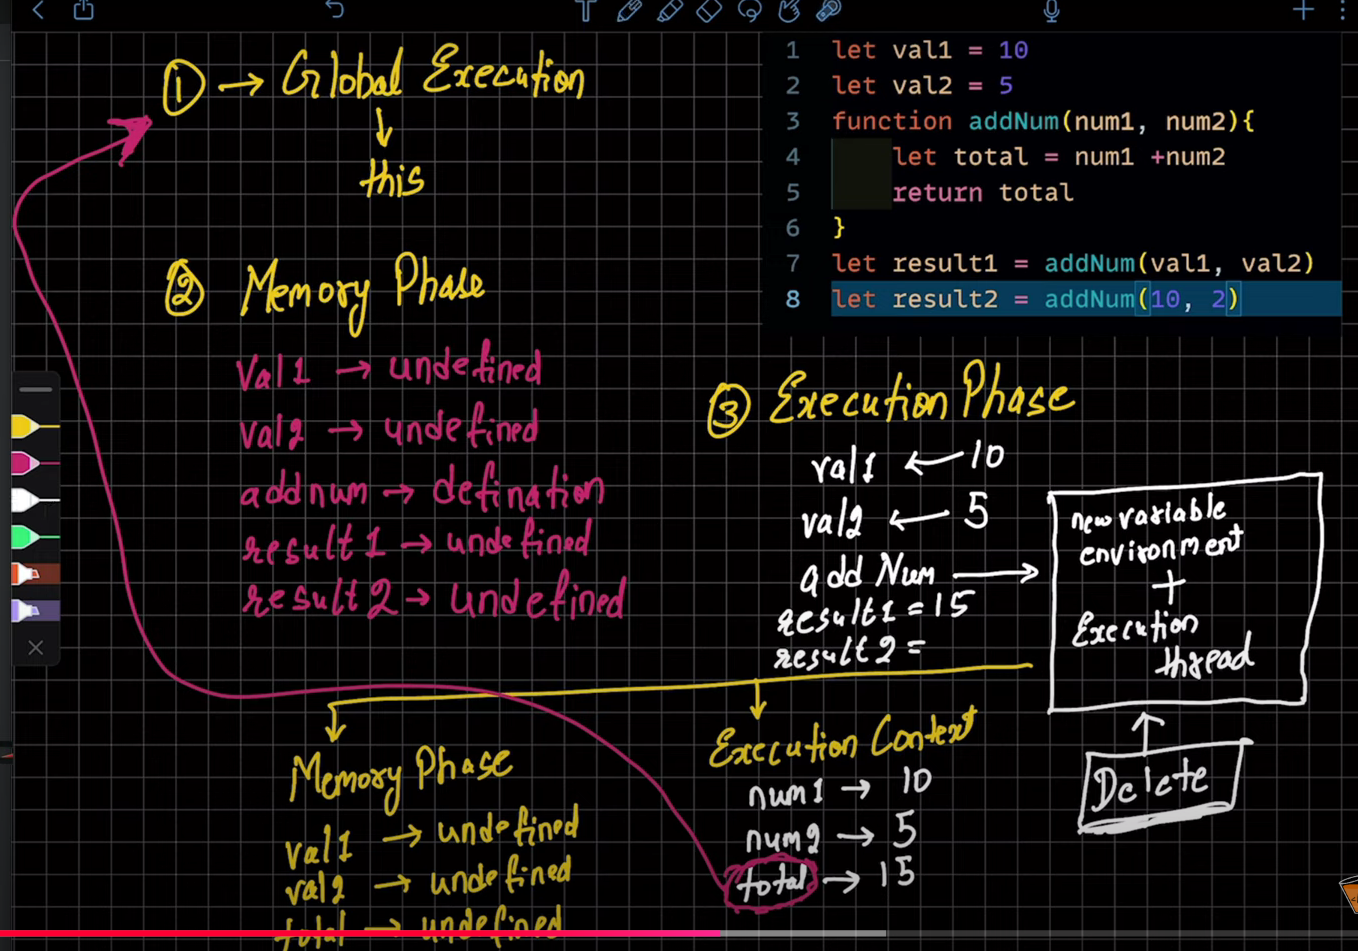 ① → Global Execution
↓
this
② Memory Phase
Val1 → undefined
val2 → undefined
addnum → defination
result1 → undefined
result2 → undefined
1 let val1 = 10
2 let val2 = 5
3 function addNum(num1, num2){
4 let total = num1 +num2
5 return total
6 }
7 let result1 = addNum(val1, val2)
8 let result2 = addNum(10, 2)
③ Execution Phase
val1 ← 10
val2 ← 5
add Num →
result1 = 15
result2 =
new variable
environment
+
Execution
thread
Delete
Memory Phase
val1 → undefined
val2 → undefined
total → undefined
Execution Context
num1 → 10
num2 → 5
total → 15